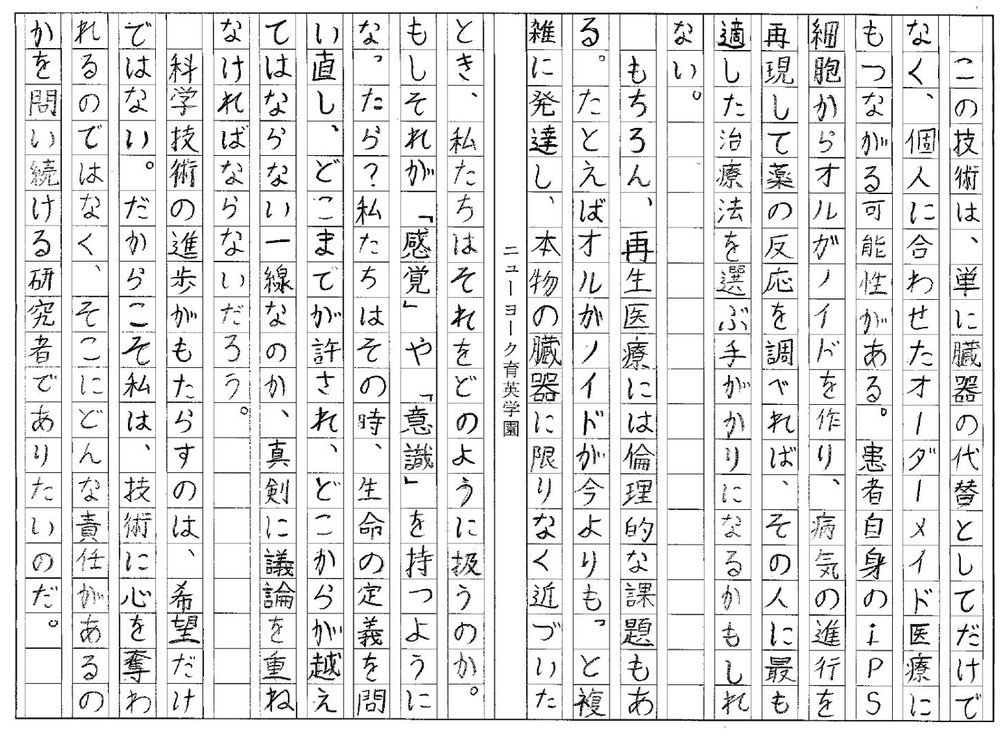 この技術は、単に臓器の代替としてだけで
なく、個人に合わせたオーダーメイド医療に
もつながる可能性がある。患者自身のiPS
細胞からオルガノイドを作り、病気の進行を
再現して薬の反応を調べれば、その人に最も
適した治療法を選ぶ手がかりになるかもしれ
ない。
　もちろん、再生医療には倫理的な課題もあ
る。たとえばオルガノイドが今よりもっと複
雑に発達し、本物の臓器に限りなく近づいた
ニューヨーク育英学園
とき、私たちはそれをどのように扱うのか。
もしそれが「感覚」や「意識」を持つように
なったら？私たちはその時、生命の定義を問
い直し、どこまでが許され、どこからが越え
てはならない一線なのか、真剣に議論を重ね
なければならないだろう。
　科学技術の進歩がもたらすのは、希望だけ
ではない。だからこそ私は、技術に心を奪わ
れるのではなく、そこにどんな責任があるの
かを問い続ける研究者でありたいのだ。